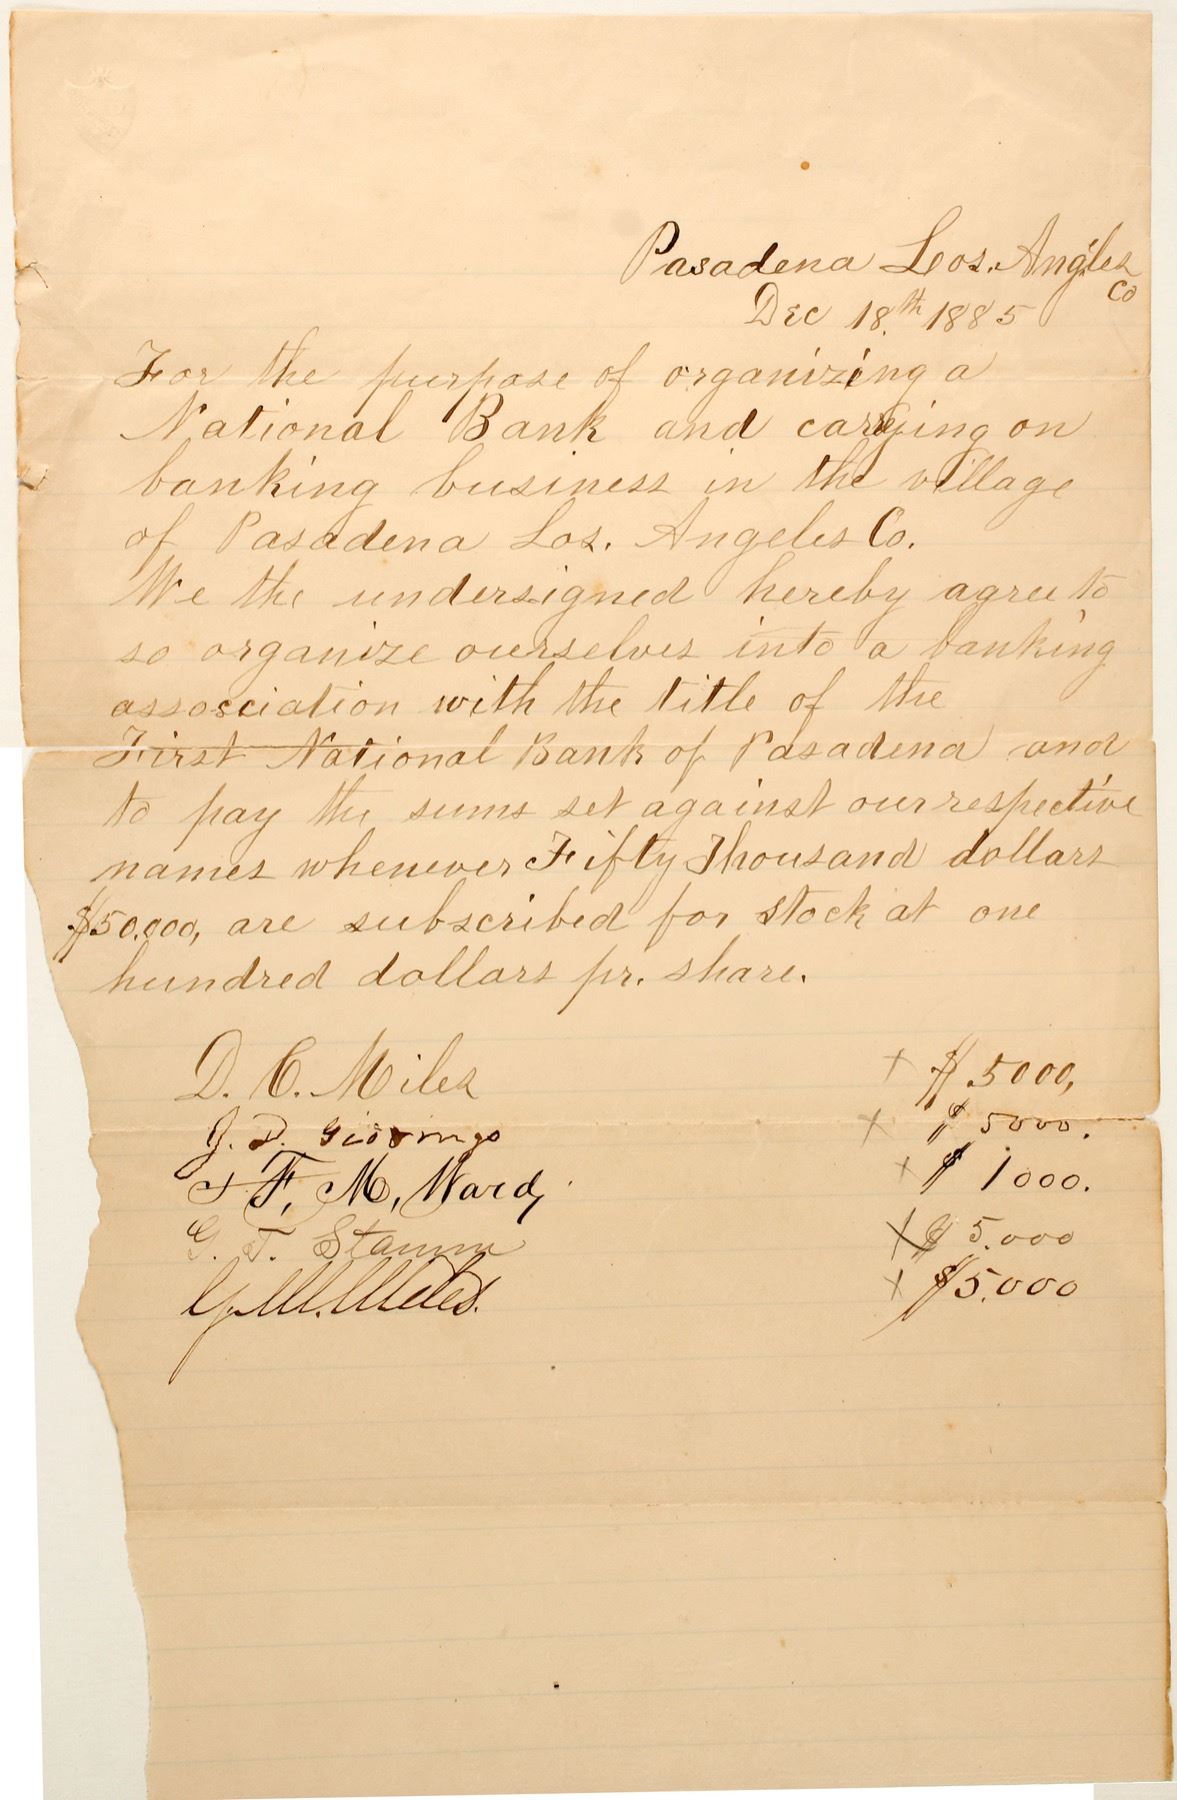 Pasadena Los. Angles
Co
Dec 18.th 1885
For the purpose of organizing a
National Bank and carrying on
banking business in the village
of Pasadena Los. Angeles Co.
We the undersigned hereby agree to
so organize ourselves into a banking
association with the title of the
First National Bank of Pasadena and
to pay the sums set against our respective
names whenever Fifty Thousand dollars
$50.000, are subscribed for stock at one
hundred dollars pr. share.
D. C. Miles x $ 5000,
J. D. x $ 5000.
F. M. Ward x $ 1000.
G. T. Stamm x $ 5.000
x $5.000